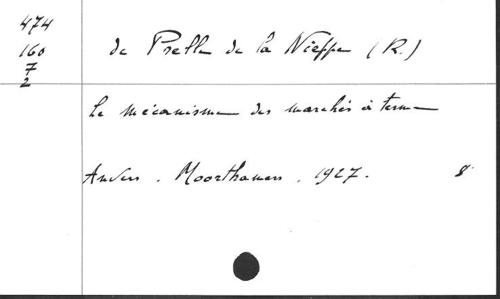 474
160
7
2
de Prelle de la Nieppe (R.)
Le mécanisme des marchés à terme
Anvers . Moorthamers . 1927. 8°